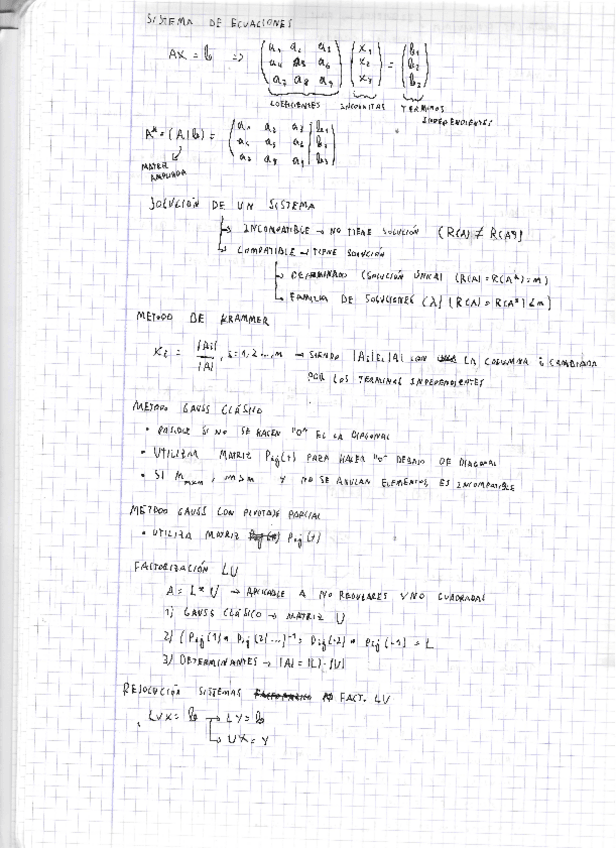 SISTEMA DE ECUACIONES
AX = b => (a₁ a₂ a₃ / a₄ a₅ a₆ / a₇ a₈ a₉) (x₁ / x₂ / x₃) = (b₁ / b₂ / b₃)
COEFICIENTES INCOGNITAS TERMINOS INDEPENDIENTES
A* = (A|b) = (a₁ a₂ a₃ | b₁ / a₄ a₅ a₆ | b₂ / a₇ a₈ a₉ | b₃)
MATRIZ AMPLIADA
SOLUCIÓN DE UN SISTEMA
↳ INCOMPATIBLE → NO TIENE SOLUCIÓN (R(A) ≠ R(A*))
↳ COMPATIBLE → TIENE SOLUCIÓN
↳ DETERMINADO (SOLUCIÓN ÚNICA) (R(A) = R(A*) = m)
↳ FAMILIA DE SOLUCIONES (λ) (R(A) = R(A*) < m)
METODO DE KRAMMER
xᵢ = |Aᵢ| / |A| , i = 1, 2 ..., m → SIENDO |Aᵢ| EL |A| CON LA COLUMNA i CAMBIADA
POR LOS TERMINOS INDEPENDIENTES
METODO GAUSS CLÁSICO
• POSIBLE SI NO SE HACEN "0" EL LA DIAGONAL
• UTILIZA MATRIZ Pij(t) PARA HACER "0" DEBAJO DE DIAGONAL
• SI Mmxn, m>n Y NO SE ANULAN ELEMENTOS, ES INCOMPATIBLE
METODO GAUSS CON PIVOTAJE PARCIAL
• UTILIZA MATRIZ Pij(t)
FACTORIZACIÓN LU
A = L * U → APLICABLE A NO REGULARES Y NO CUADRADAS
1) GAUSS CLÁSICO → MATRIZ U
2) (Pij(1) * Pij(2) ...)⁻¹ = Pij(-2) * Pij(-1) = L
3) DETERMINANTES → |A| = |L|·|U|
RESOLUCIÓN SISTEMAS FACT. LU
LUX = b → LY = b
↳ UX = Y